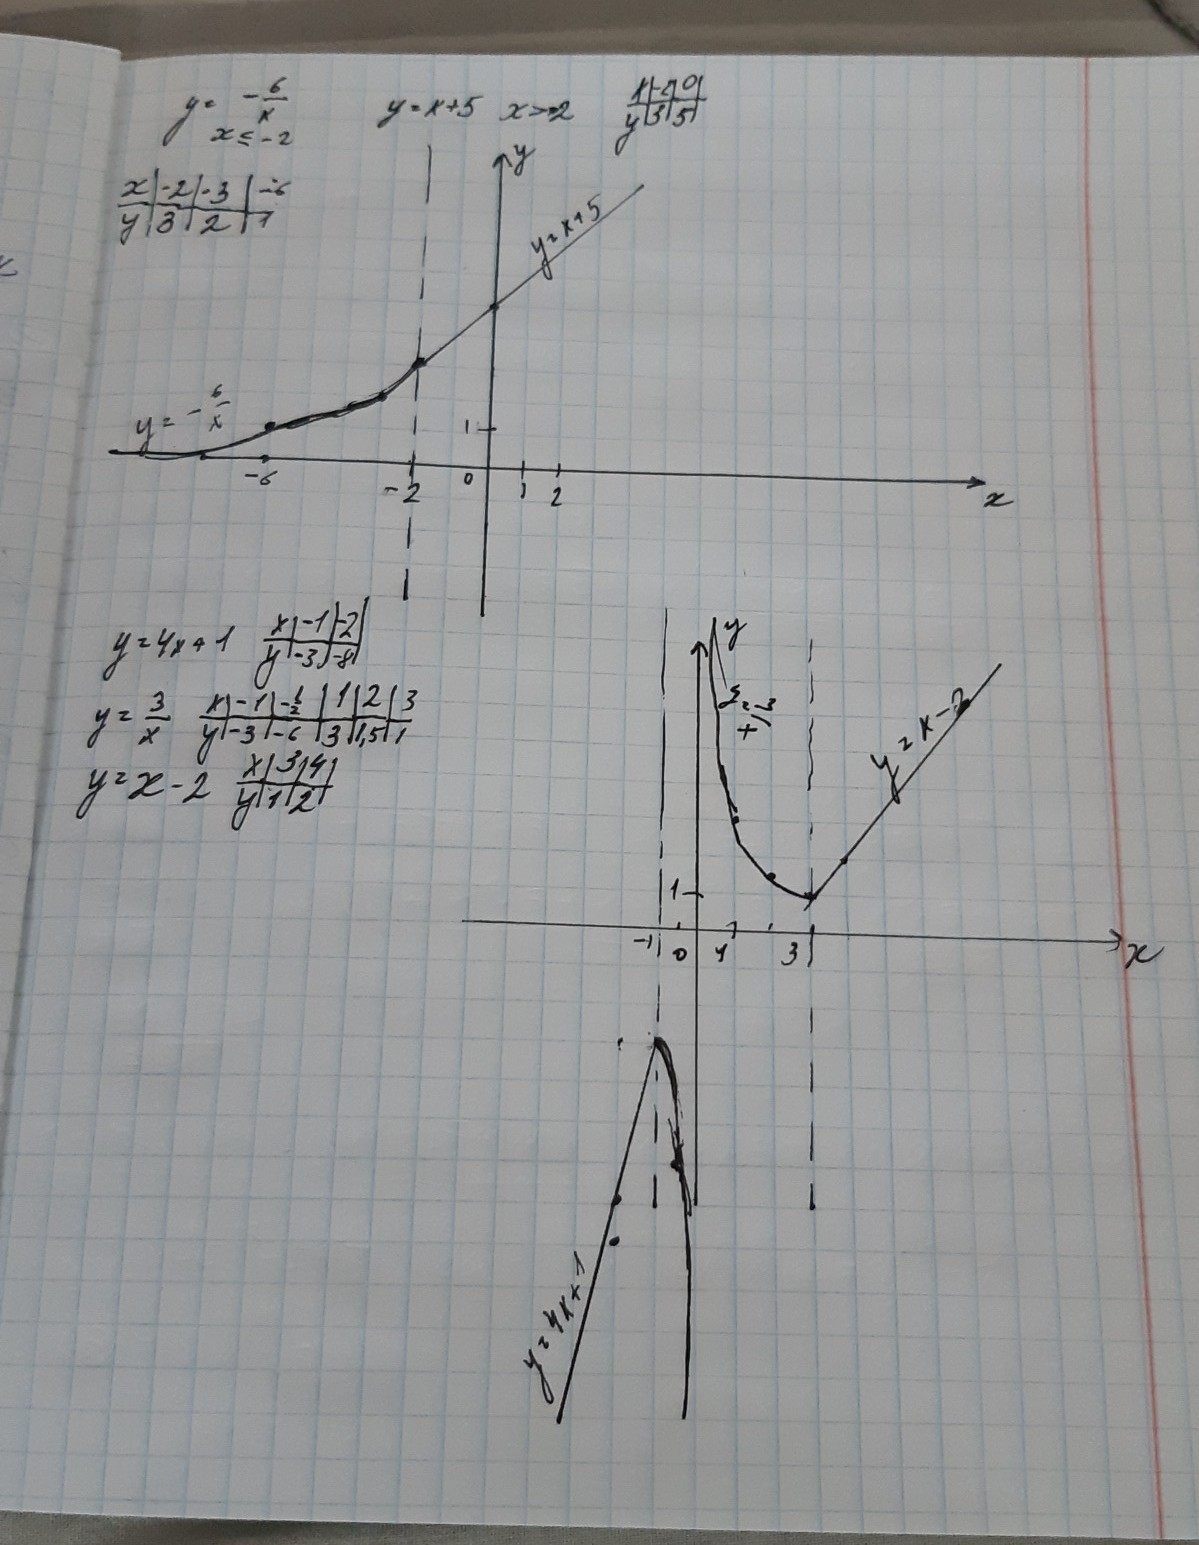 y = -6/x   y = x+5   x > -2   x | -2 | 0
x ≤ -2   y | 3 | 5
x | -2 | -3 | -6
y | 3 | 2 | 1
y
y=x+5
y = -6/x
1
-6   -2   0   1   2   x
y=4x+1   x | -1 | -2
y | -3 | -8
y = 3/x   x | -1 | -1/2 | 1 | 2 | 3
y | -3 | -6 | 3 | 1,5 | 1
y=x-2   x | 3 | 4
y | 1 | 2
y
y=x-2
1
-1   0   1   3   x
y=4x+1